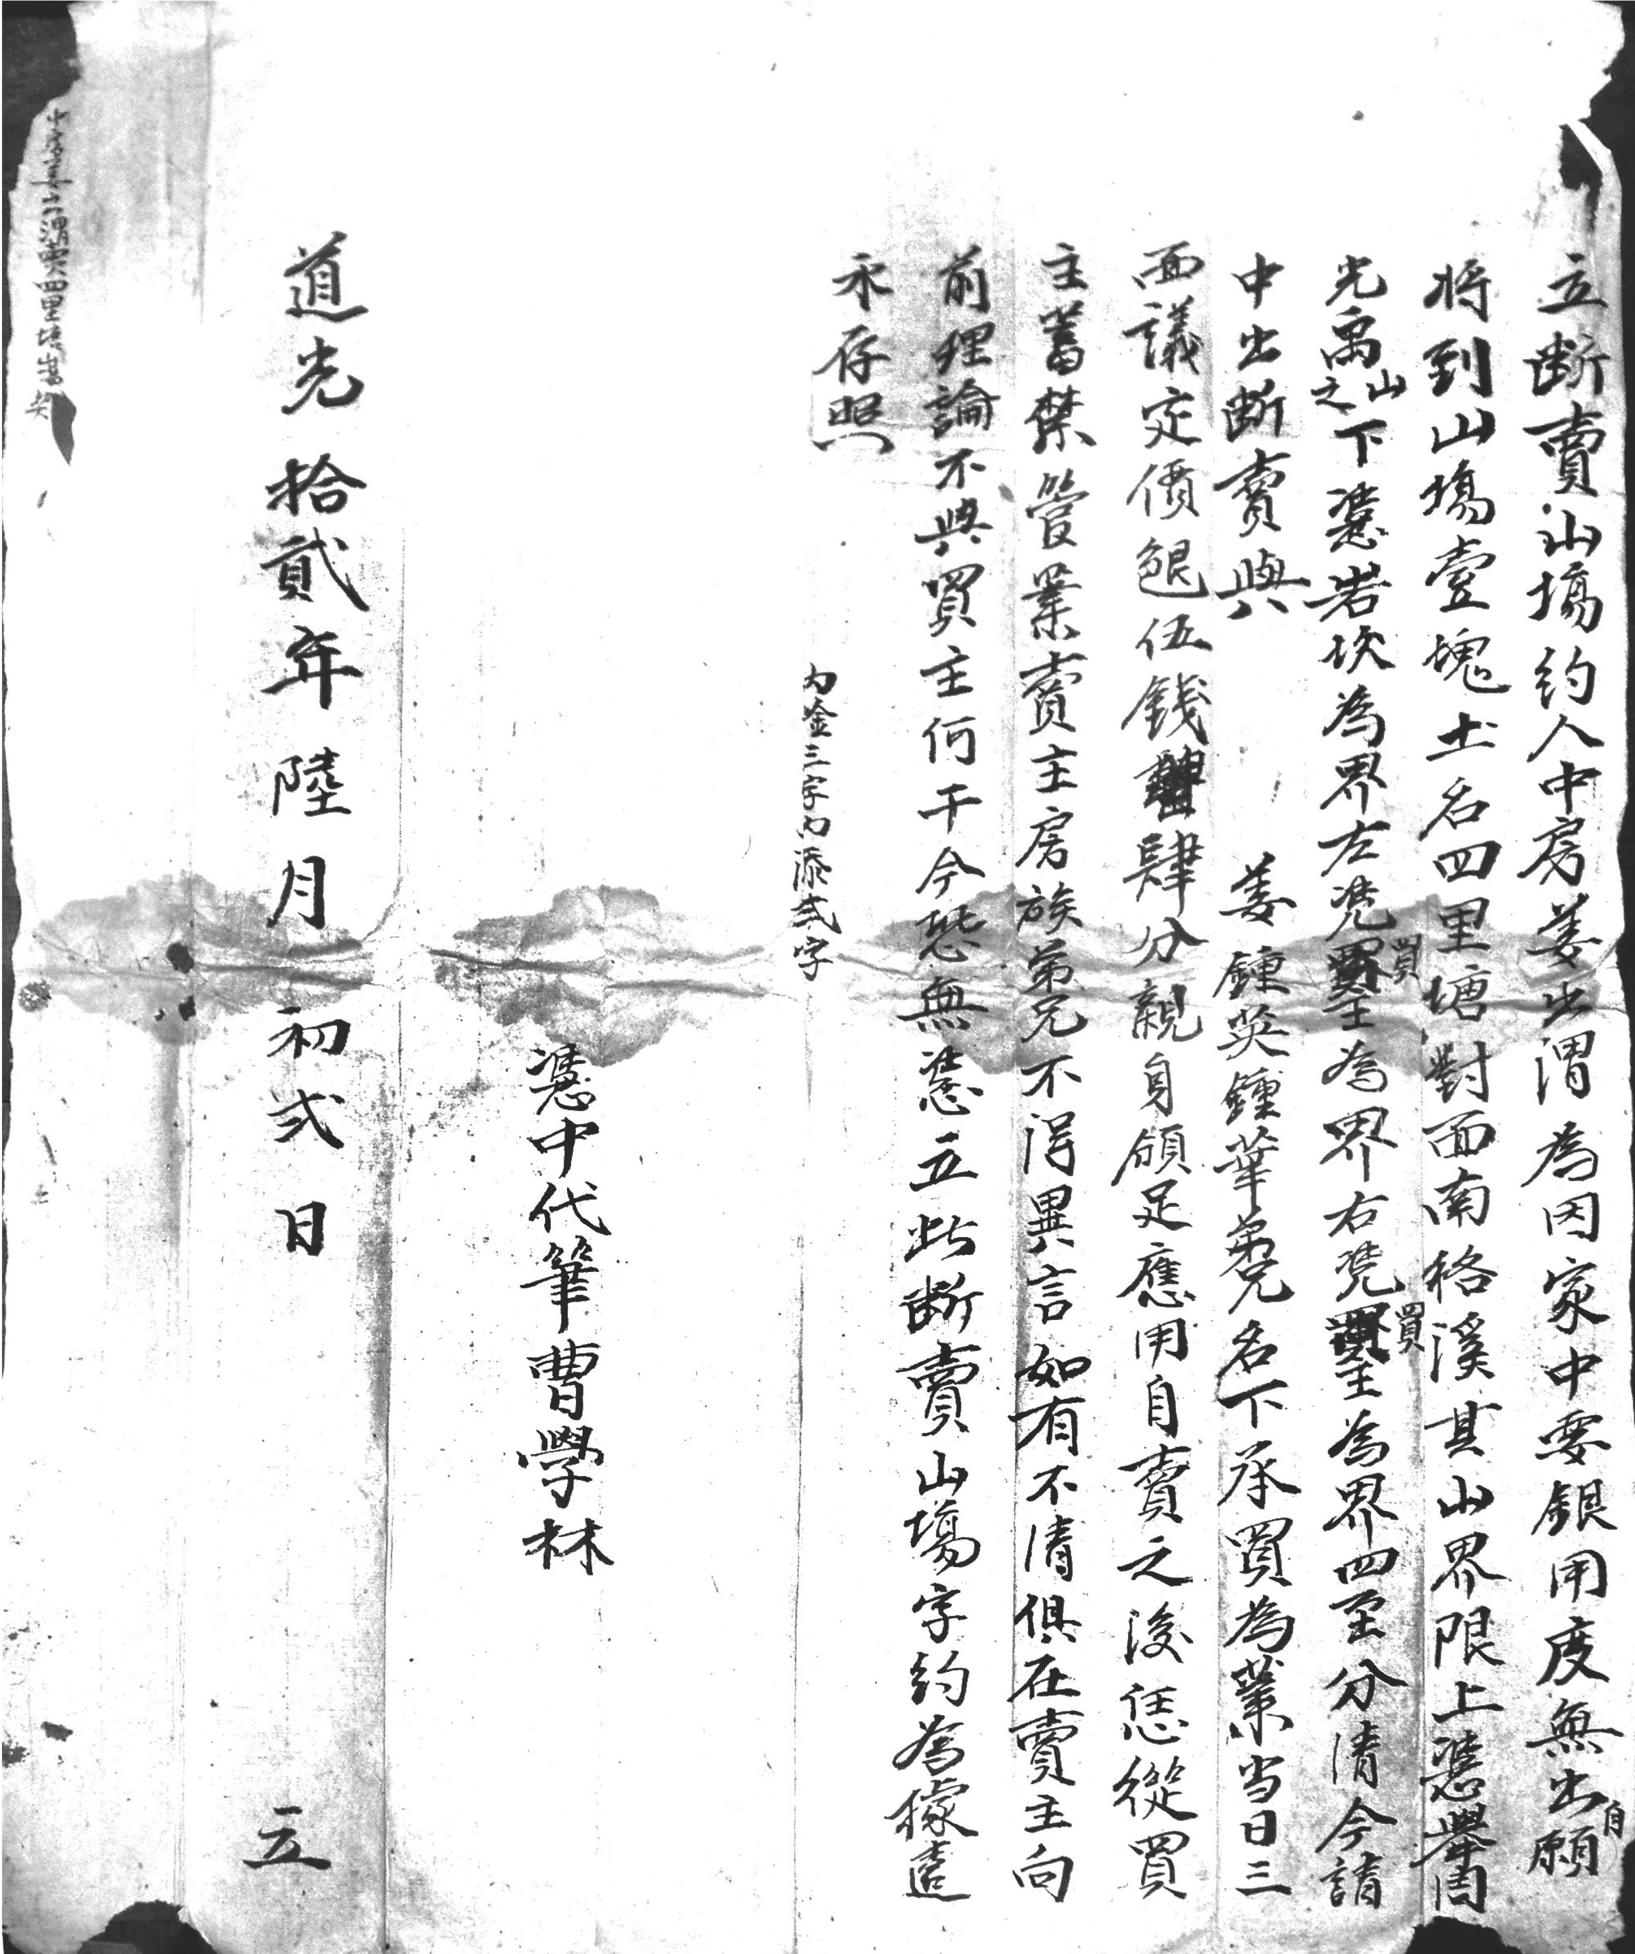 立斷賣山塲約人中房姜出渭為因家中要銀用度無出自願
將到山塲壹塊土名四里塘對面南格溪其山界限上憑舉周
光禹之山下憑岩坎為界左凴買主為界右凴買主為界四至分清今請
中出斷賣與 姜鍾英鍾華弟兄名下承買為業当日三
面議定價銀伍錢肆分親身領足應用自賣之後恁從買
主蓄禁管業賣主房族弟兄不得異言如有不清俱在賣主向
前理論不與買主何干今恐無憑立此斷賣山塲字約為據遠
永存照
內塗三字內添弍字
憑中代筆曹學林
道光拾貳年陸月初弍日 立
中房姜出渭賣四里塘山塲契